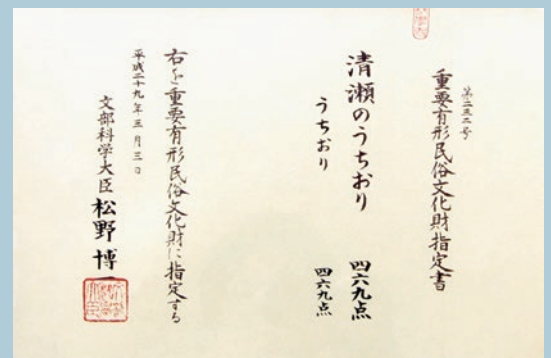 第二三二号
重要有形民俗文化財指定書
清瀬のうちおり 四六九点
うちおり 四六九点
右を重要有形民俗文化財に指定する
平成二十九年三月三日
文部科学大臣 松野博